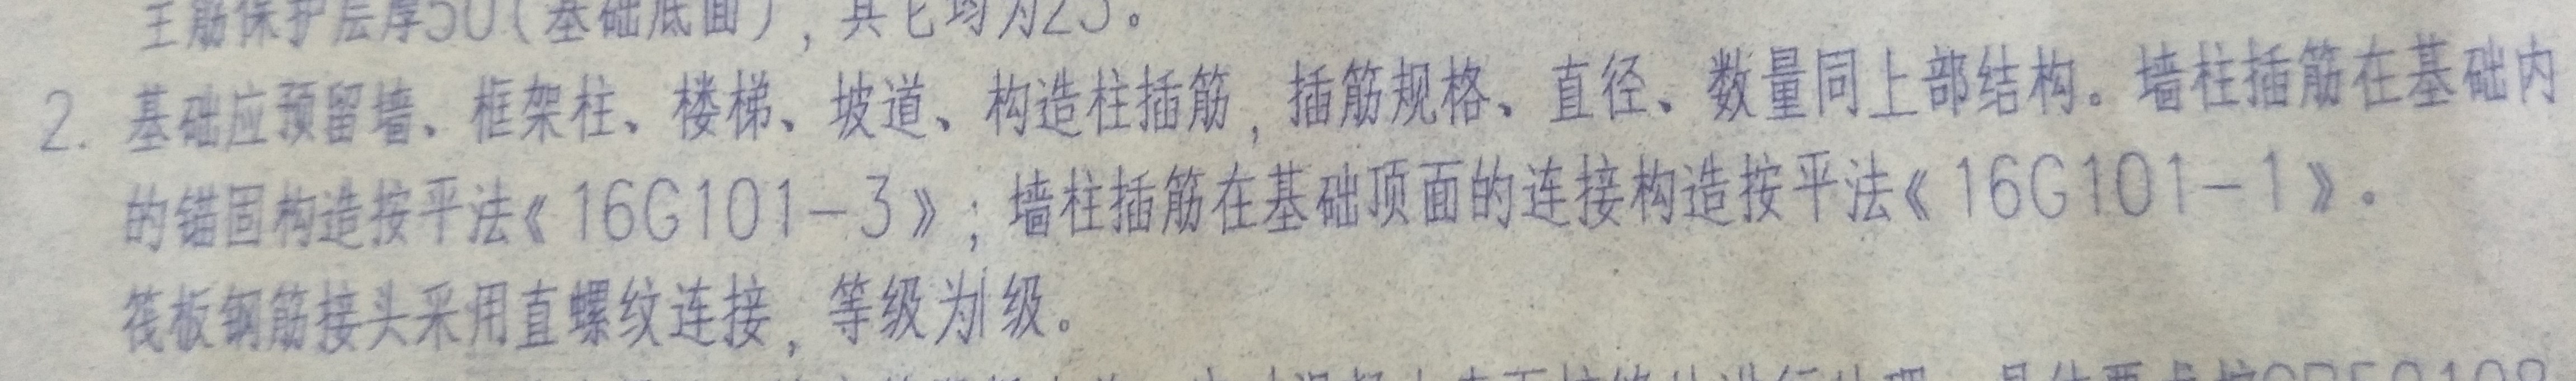 主筋保护层厚50(基础底面),其它均为25。
2. 基础应预留墙、框架柱、楼梯、坡道、构造柱插筋,插筋规格、直径、数量同上部结构。墙柱插筋在基础内
的锚固构造按平法《16G101-3》;墙柱插筋在基础顶面的连接构造按平法《16G101-1》。
筏板钢筋接头采用直螺纹连接,等级为I级。